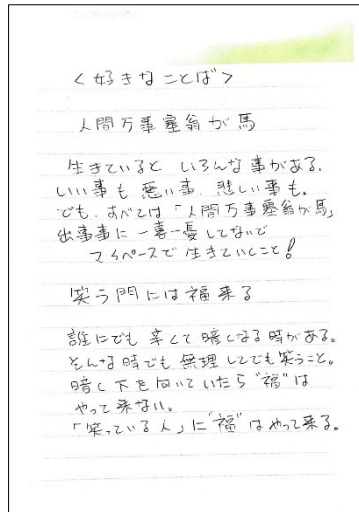 ＜好きなことば＞
人間万事塞翁が馬
生きていると いろんな事がある。
いい事も 悪い事、悲しい事も。
でも、すべては「人間万事塞翁が馬」
出事事に一喜一憂してないで
マイペースで生きていくこと!
笑う門には福来る
誰にでも 辛くて暗くなる時がある。
そんな時でも 無理してでも笑うこと。
暗く下を向いていたら"福"は
やって来ない。
「笑っている人」に"福"はやって来る。